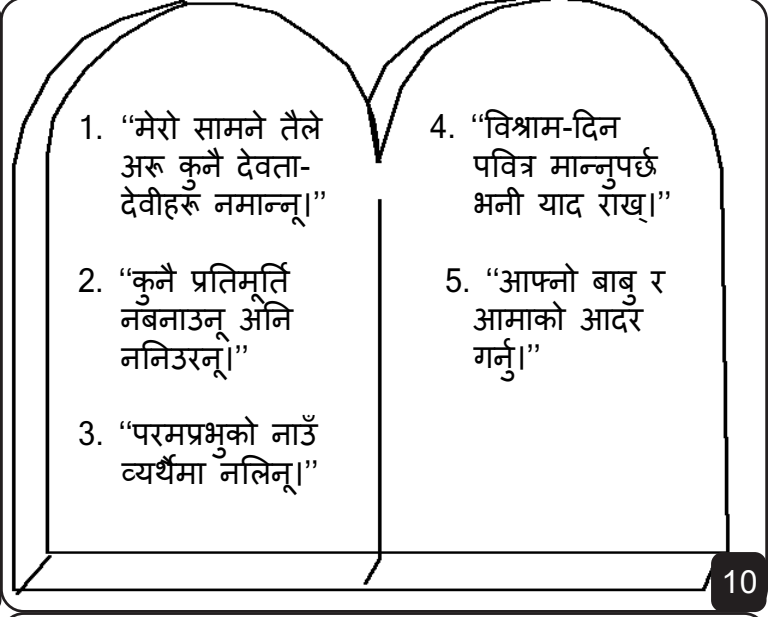 1. ‘‘मेरो सामने तैले
अरू कुनै देवता-
देवीहरू नमान्नू।’’
2. ‘‘कुनै प्रतिमूर्ति
नबनाउनू अनि
ननिउरनू।’’
3. ‘‘परमप्रभुको नाउँ
व्यर्थैमा नलिनू।’’
4. ‘‘विश्राम-दिन
पवित्र मान्नुपर्छ
भनी याद राख्।’’
5. ‘‘आफ्नो बाबु र
आमाको आदर
गर्नु।’’
10